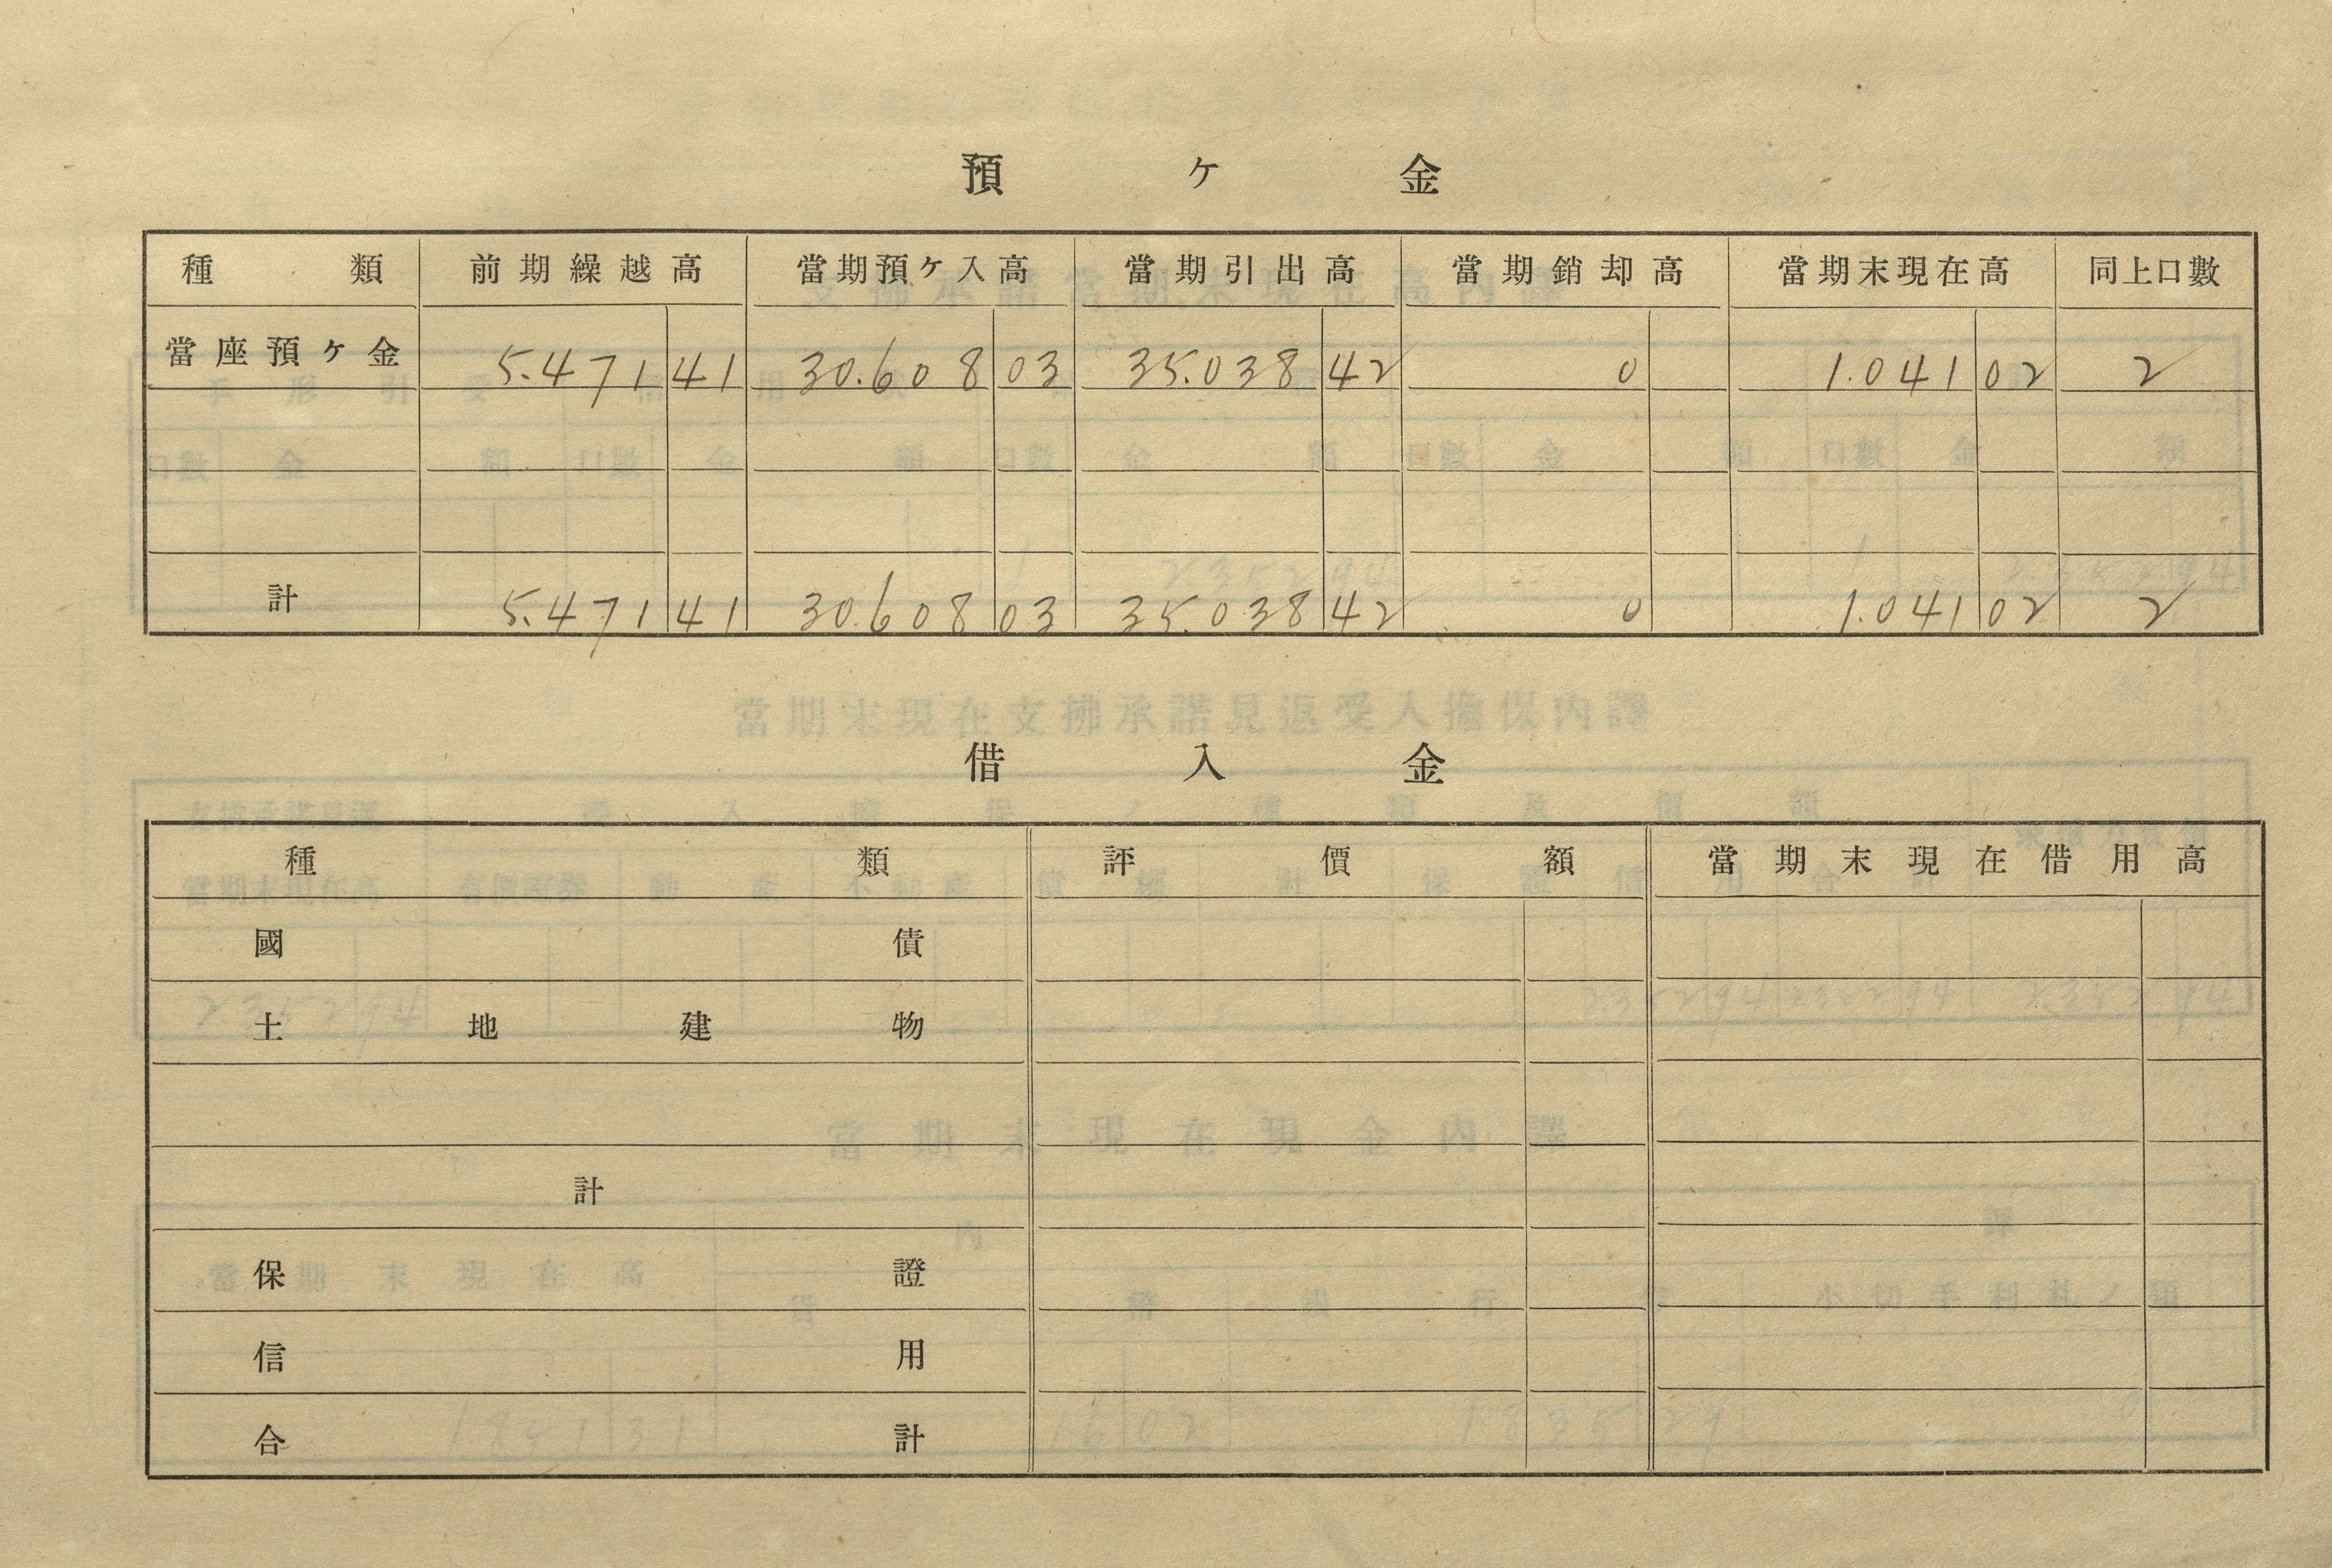 預ケ金
種類 前期繰越高 當期預ケ入高 當期引出高 當期銷却高 當期末現在高 同上口數
當座預ケ金 5.471 41 30.608 03 35.038 42 0 1.041 02 2
計 5.471 41 30.608 03 35.038 42 0 1.041 02 2
借入金
種類 評價額 當期末現在借用高
國債
土地建物
計
保證
信用
合計